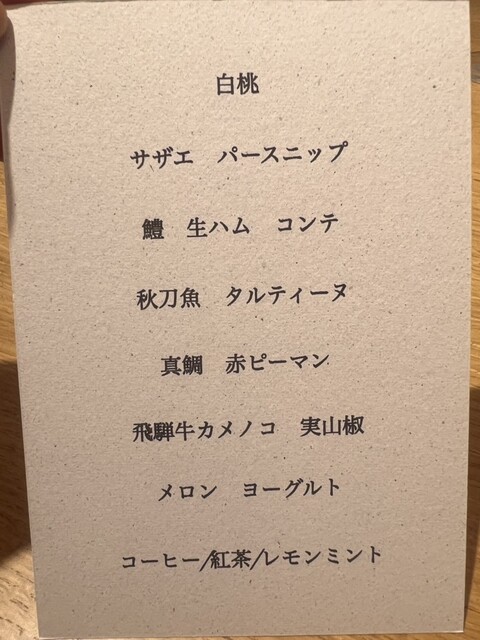 白桃
サザエ　パースニップ
鱧　生ハム　コンテ
秋刀魚　タルティーヌ
真鯛　赤ピーマン
飛騨牛カメノコ　実山椒
メロン　ヨーグルト
コーヒー/紅茶/レモンミント